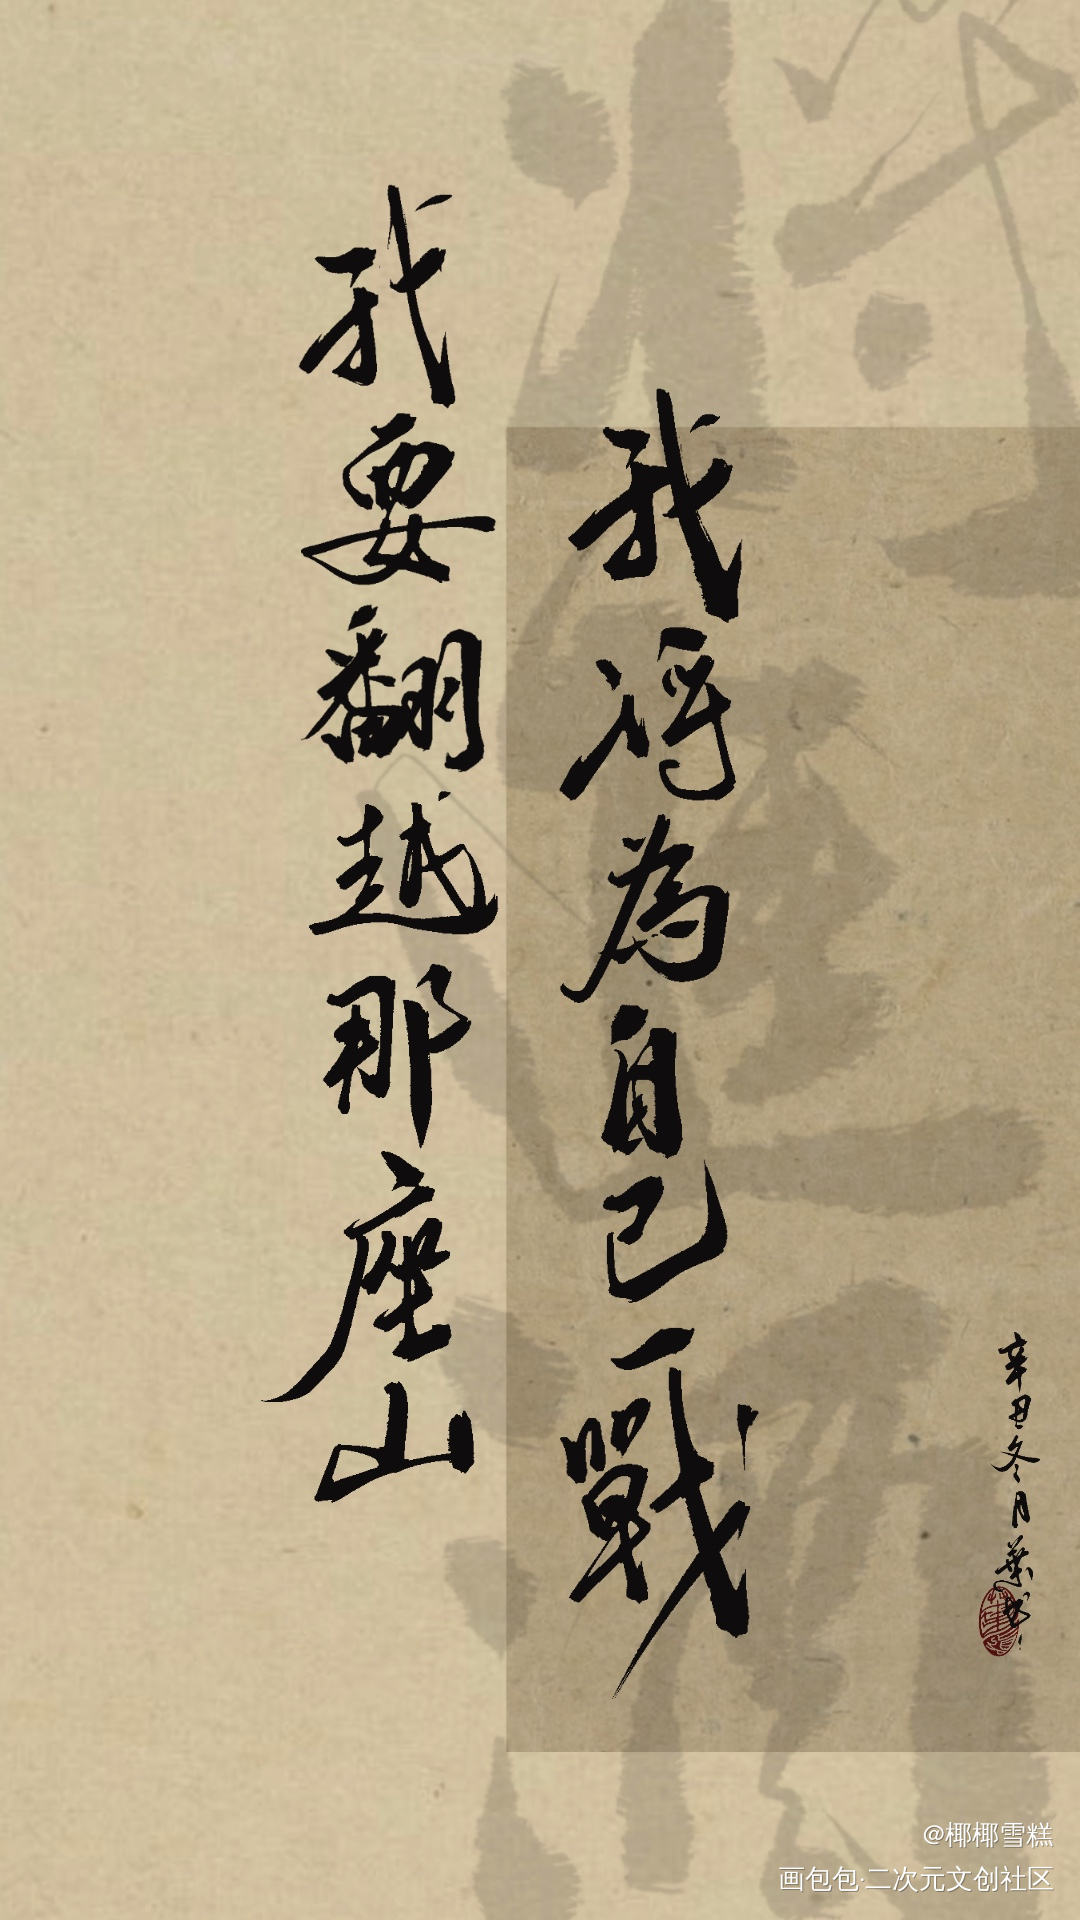 我将為自己一戰
我要翻越那座山
辛丑冬月葉书
@椰椰雪糕
画包包·二次元文创社区